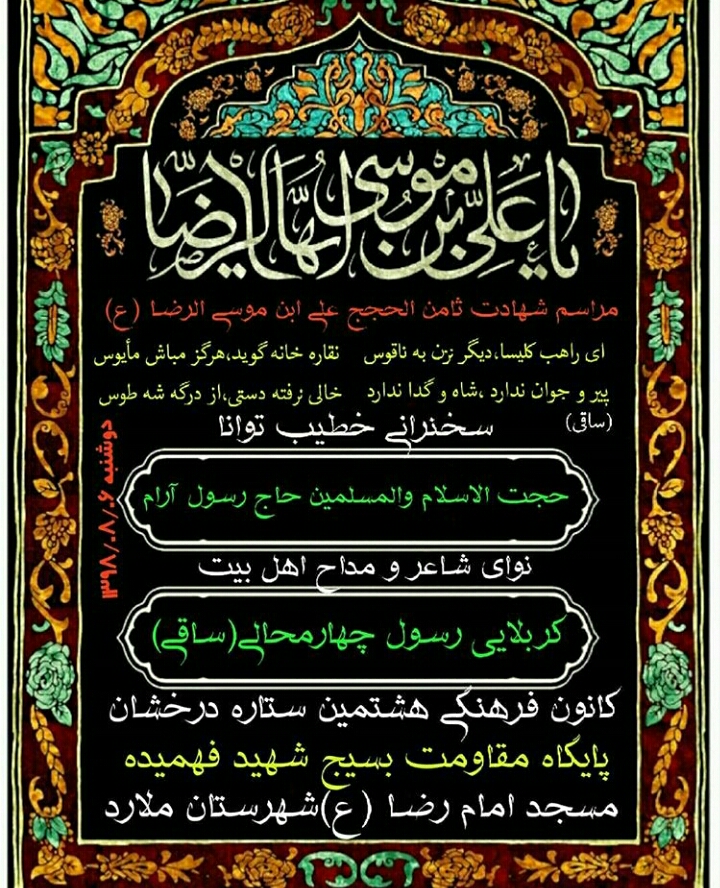 یا عَلیِّ بنِ موُسیَ الرِّضا
مراسم شهادت ثامن الحجج علی ابن موسی الرضا (ع)
ای راهب کلیسا،دیگر نزن به ناقوس نقاره خانه گوید،هرگز مباش مأیوس
پیر و جوان ندارد ،شاه و گدا ندارد خالی نرفته دستی،از درگه شه طوس
(ساقی)
سخنرانی خطیب توانا
دوشنبه ۱۳۹۸/۰۸/۰۶
حجت الاسلام والمسلمین حاج رسول آرام
نوای شاعر و مداح اهل بیت
کربلایی رسول چهارمحالی(ساقی)
کانون فرهنگی هشتمین ستاره درخشان
پایگاه مقاومت بسیج شهید فهمیده
مسجد امام رضا (ع)شهرستان ملارد